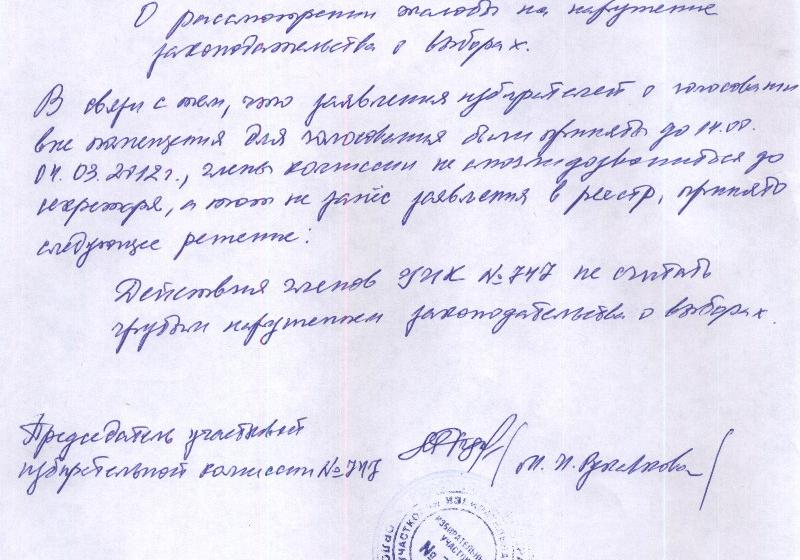 О рассмотрении жалобы на нарушение
законодательства о выборах.
В связи с тем, что заявления избирателей о голосовании
вне помещения для голосования были приняты до 14.00.
04.03.2012г., члены комиссии не смогли дозвониться до
секретаря, а тот не занёс заявления в реестр, принято
следующее решение:
Действия членов УИК №747 не считать
грубым нарушением законодательства о выборах.
Председатель участковой
избирательной комиссии №747
М. И.
УЧАСТКОВАЯ ИЗБИРАТЕЛЬНАЯ
ИЗБИРАТЕЛЬНЫЙ
УЧАСТОК
№